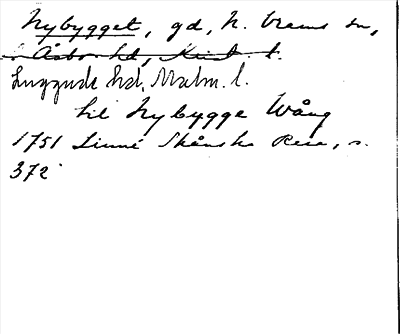 Nybygget, gd, N. Vrams sn,
S. Åsbo hd, Krist. l.
Luggude hd, Malm. l.
till Nybygge Wång
1751 Linné Skånska Resa, s.
372